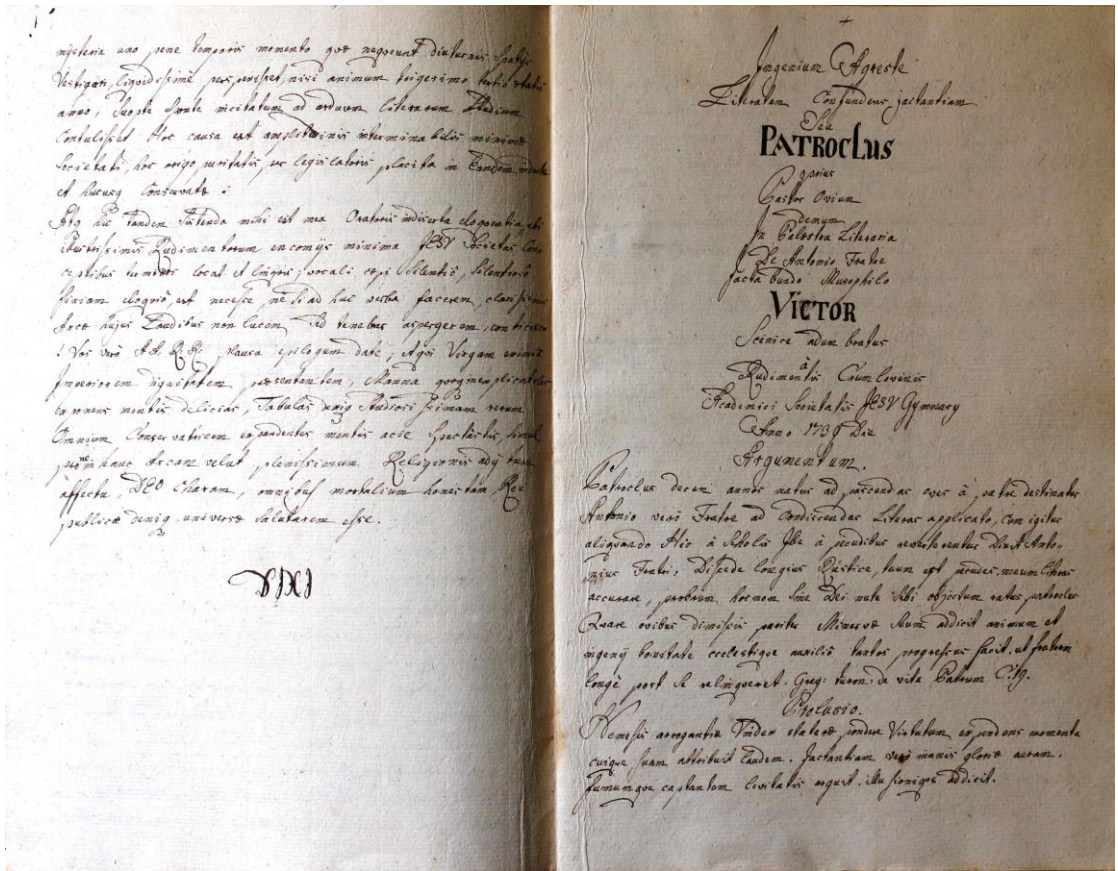 mysteria uno pene temporis momento quæ nequeunt diuturnis spatijs
Vestigari, liquidissime perspexisset, nisi animum trigesimo tertio ætatis
anno, suopte sponte incitatum ad arduum literarum studium
Contulisset. Hoc causa est
Societati, hoc origo puritatis, ac legislatoris placita in
et hucusq Conservatæ :
Atq hic tandem sistenda mihi est mea Oratoris indiserta eloquentia ubi
illustrissimis Rudimentorum encomijs minima JESV Societas Con=
silentio
finiam eloquio, est necesse, ne si ad huc verba facerem, clarissimis
Arcæ hujus Laudibus non lucem sed tenebras aspergerem, conticesco
! Vos verò A.A. R.R. plausu epilogum date, Aqui Virgam eximiæ
Imperiorem dignitatem præsentantem, Manna
exponens mentis delicias, Tabulas deniq Studiosissimam rerum
Omnium Conservatricem expendentes mentis acie spectastis, simul
hanc Arcam velut plenissimam Religionis
affectu, DEO Charam, omnibus mortalium honestam, Rei
publicæ deniq universæ salutarem esse.
DIXI
Ingenium Agreste
Literatam Confundens jactantiam
Seu
PATROCLUS
prius
Pastor Ovium
demum
In Palæstra Literaria
De Antonio Fratre
Jactabundo Musophilo
VICTOR
Scenice adumbratus
à
Rudimentis Crumlovinis
Academici Societatis JESV Gymnasy
Anno 1739 Die
Argumentum.
Patroclus decem annos natus ad pascendas oves à patre destinatus
Antonio verò Fratre ad Condiscendas Literas applicato, cum igitur
aliquando Hic à Scholis Ille à pecudibus reverterentur dixit Anto=
nius Fratri, Discede longius Rustice, tuum est pecudes, meum literas
accurare, probrum hoc non sine Dei nutu sibi objectum ratus patroclus
Quare ovibus dimissis pariter Minervæ suum addicit animum et
ingenij bonitate cælestique auxilio tantos progressus facit, ut fratrem
longè post se relinqueret. Greg: turon: de vita Patrum C. 19.
Prolusio.
Nemesis arrogantiæ Vindex stateræ pondere Virtutum expendens momenta
cuique suam attribuit laudem. Jactantiam verò inanis gloriæ auram,
fumumque captantem levitatis arguit, illusionique addicit.